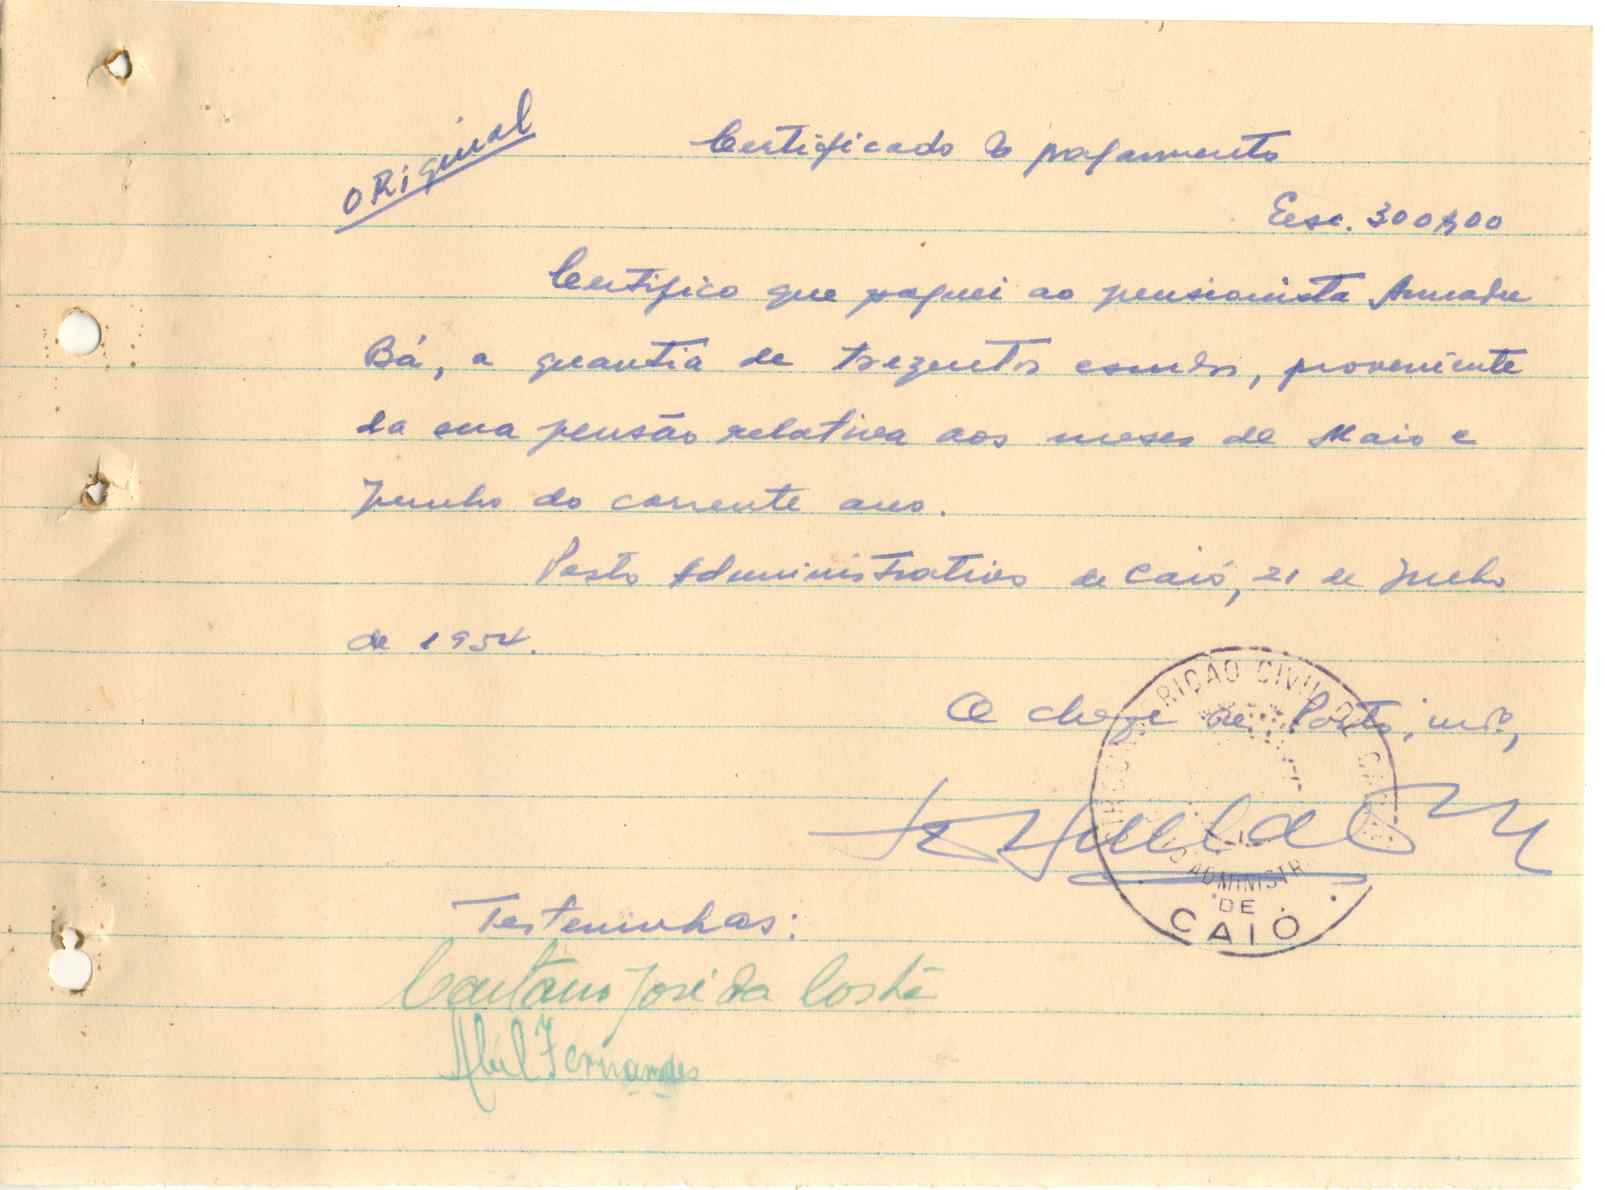 ORiginal
Certificado de pagamento
Esc. 300$00
Certifico que paguei ao pensionista Amadu
Bá, a quantia de trezentos escudos, proveniente
da sua pensão relativa aos meses de Maio e
Junho do corrente ano.
Posto Administrativo de Caió, 21 de Julho
de 1954.
O chefe de Posto, intº,
CIRCUNSCRIÇÃO CIVIL DE CA
ADMINISTR
DE
CAIÓ
Testeminhas:
Caetano José da Costa
Abel Fernandes